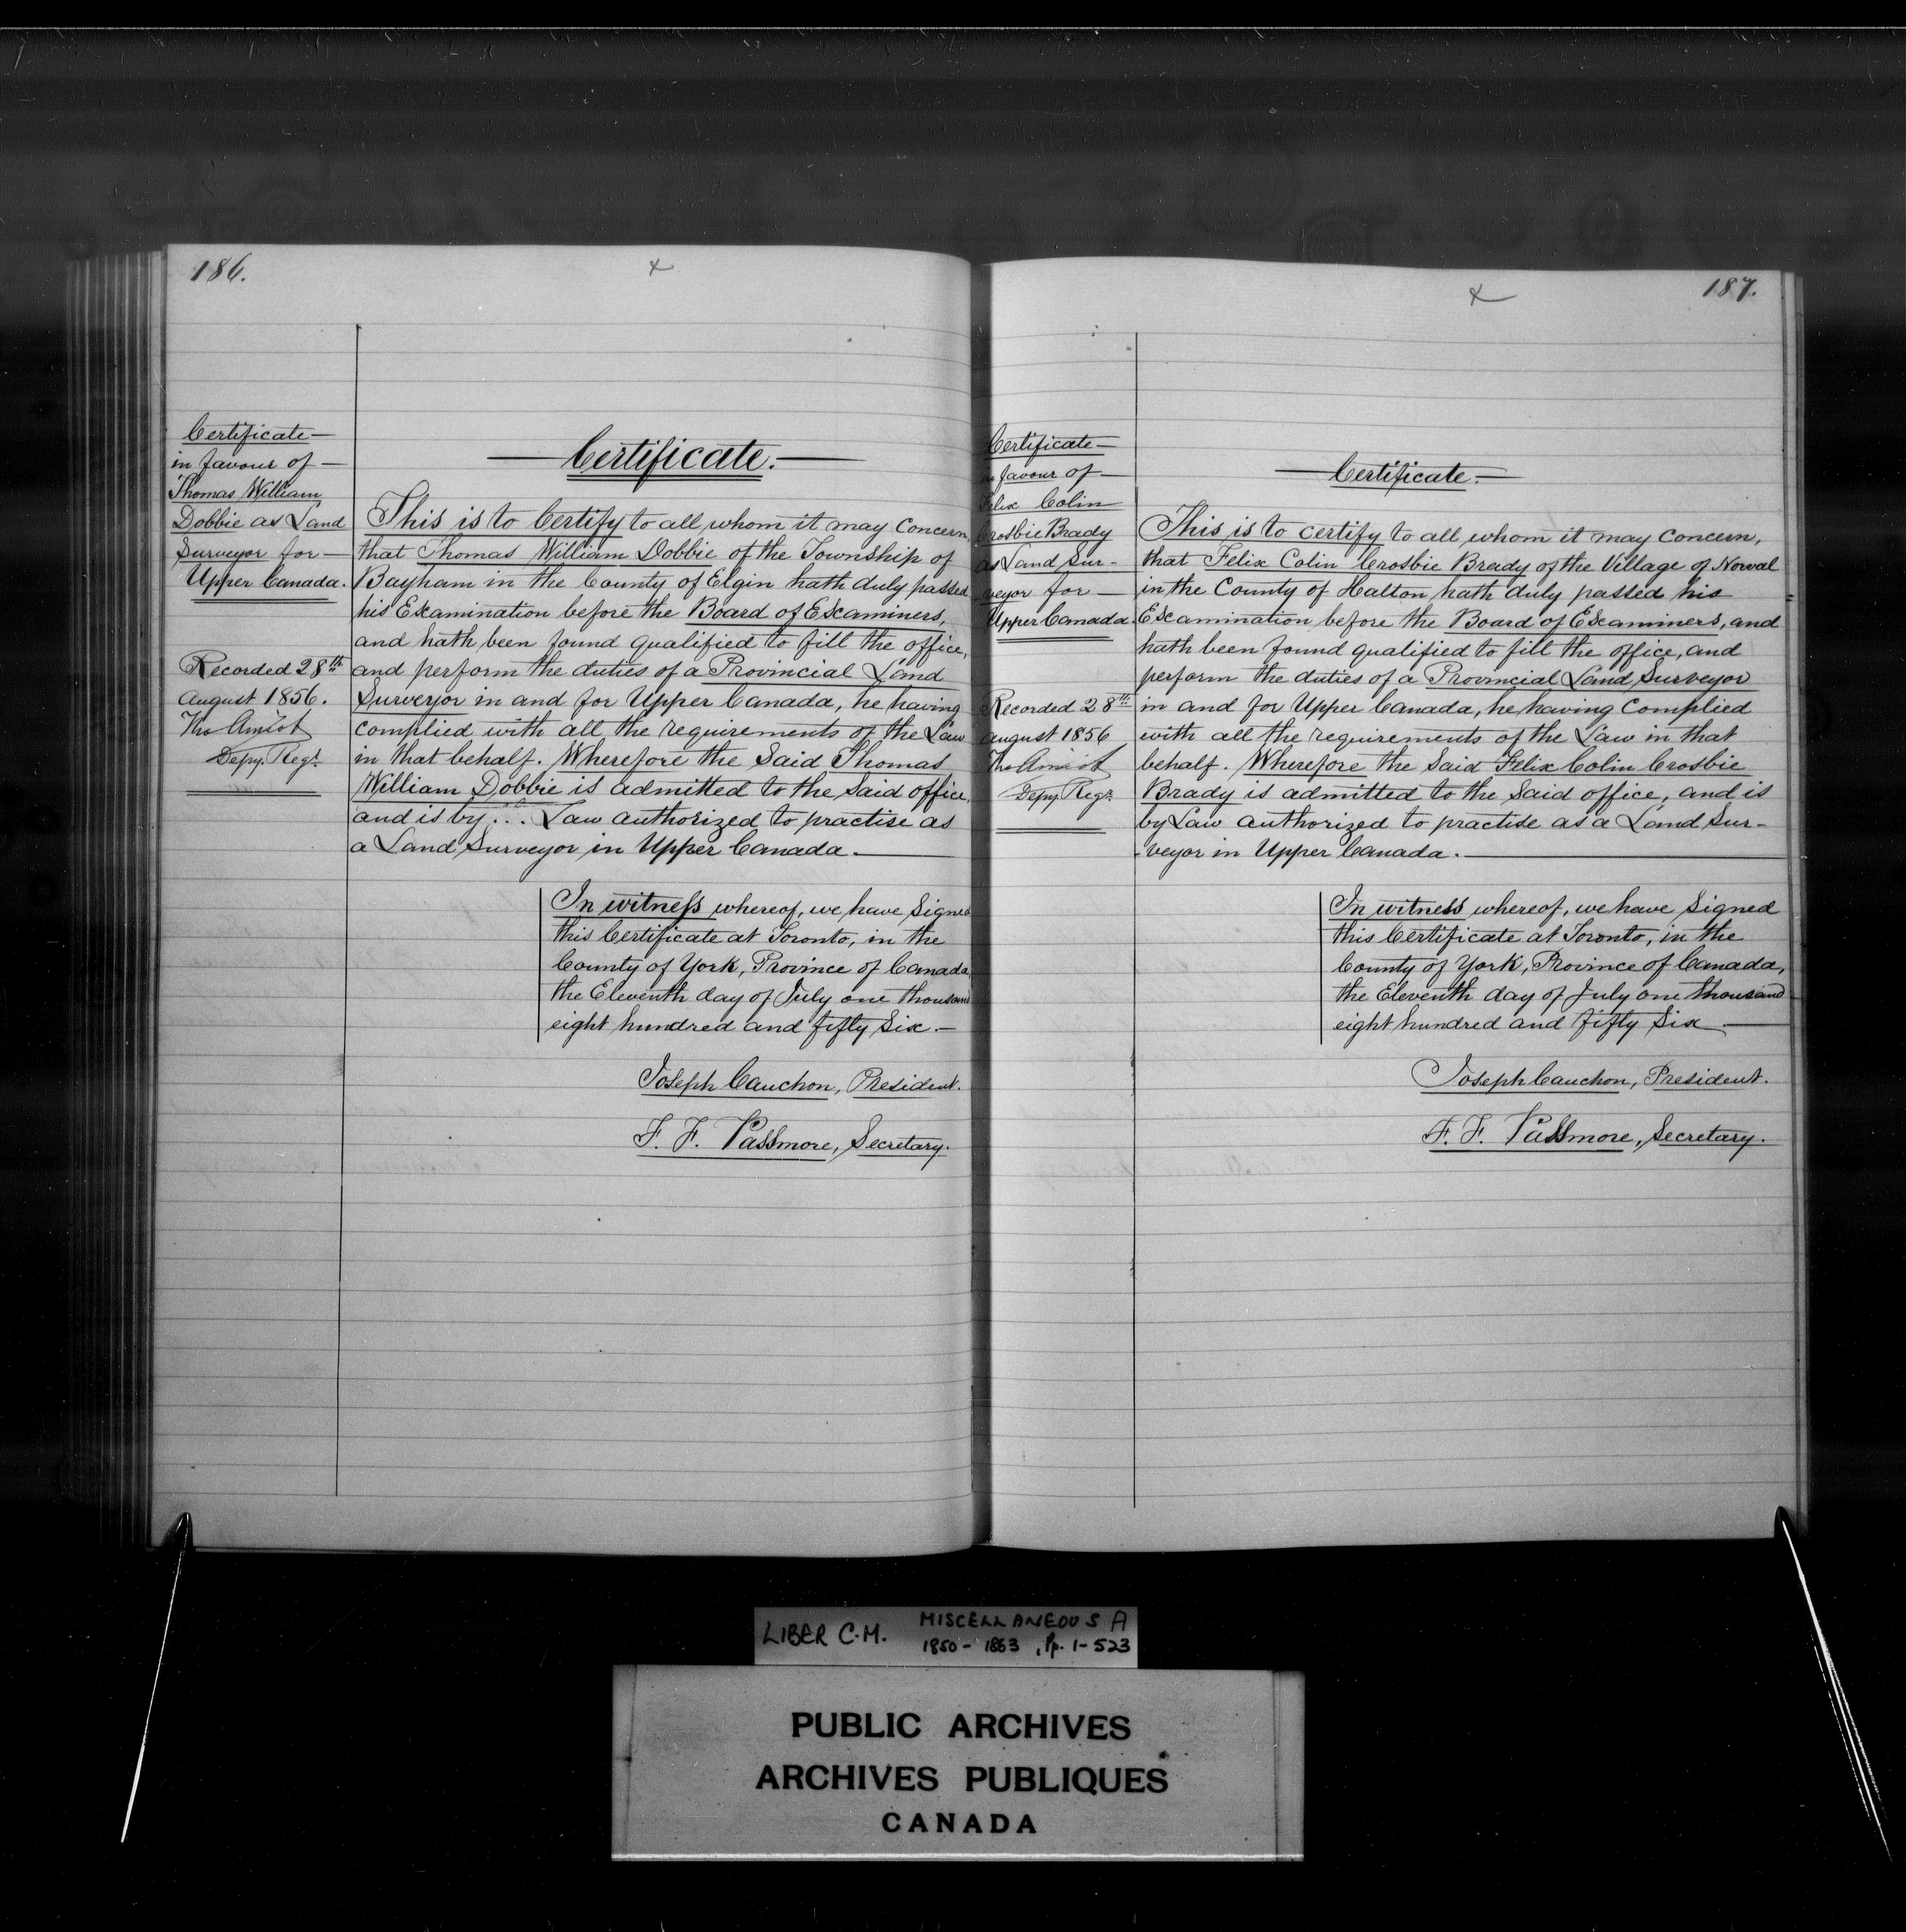 186.
Certificate —
in favour of —
Thomas William
Dobbie as Land
Surveyor for —
Upper Canada.
Recorded 28th
August 1856.
Tho Amiot
Depy. Regr.
— Certificate. —
This is to Certify to all whom it may Concern,
that Thomas William Dobbie of the Township of
Bayham in the County of Elgin hath duly passed
his Examination before the Board of Examiners,
and hath been found qualified to fill the office,
and perform the duties of a Provincial Land
Surveyor in and for Upper Canada, he having
complied with all the requirements of the Law
in that behalf. Wherefore the Said Thomas
William Dobbie is admitted to the Said office,
and is by . . . Law authorized to practise as
a Land Surveyor in Upper Canada. —
In witness whereof, we have Signed
this Certificate at Toronto, in the
County of York, Province of Canada,
the Eleventh day of July one thousand
eight hundred and fifty Six. —
Joseph Cauchon, President.
F. F. Passmore, Secretary.
187.
Certificate —
in favour of —
Felix Colin
Crosbie Brady
as Land Sur-
veyor for —
Upper Canada.
Recorded 28th
August 1856
Tho Amiot
Depy. Regr.
— Certificate. —
This is to certify to all whom it may Concern,
that Felix Colin Crosbie Brady of the Village of Norval
in the County of Halton hath duly passed his
Examination before the Board of Examiners, and
hath been found qualified to fill the office, and
perform the duties of a Provincial Land Surveyor
in and for Upper Canada, he having Complied
with all the requirements of the Law in that
behalf. Wherefore the Said Felix Colin Crosbie
Brady is admitted to the Said office, and is
by Law authorized to practise as a Land Sur-
-veyor in Upper Canada. —
In witness whereof, we have Signed
this Certificate at Toronto, in the
County of York, Province of Canada,
the Eleventh day of July one thousand
eight hundred and fifty Six —
Joseph Cauchon, President.
F. F. Passmore, Secretary.
LIBER C.M. MISCELLANEOUS A
1850 - 1863, Pp. 1-523
PUBLIC ARCHIVES
ARCHIVES PUBLIQUES
CANADA